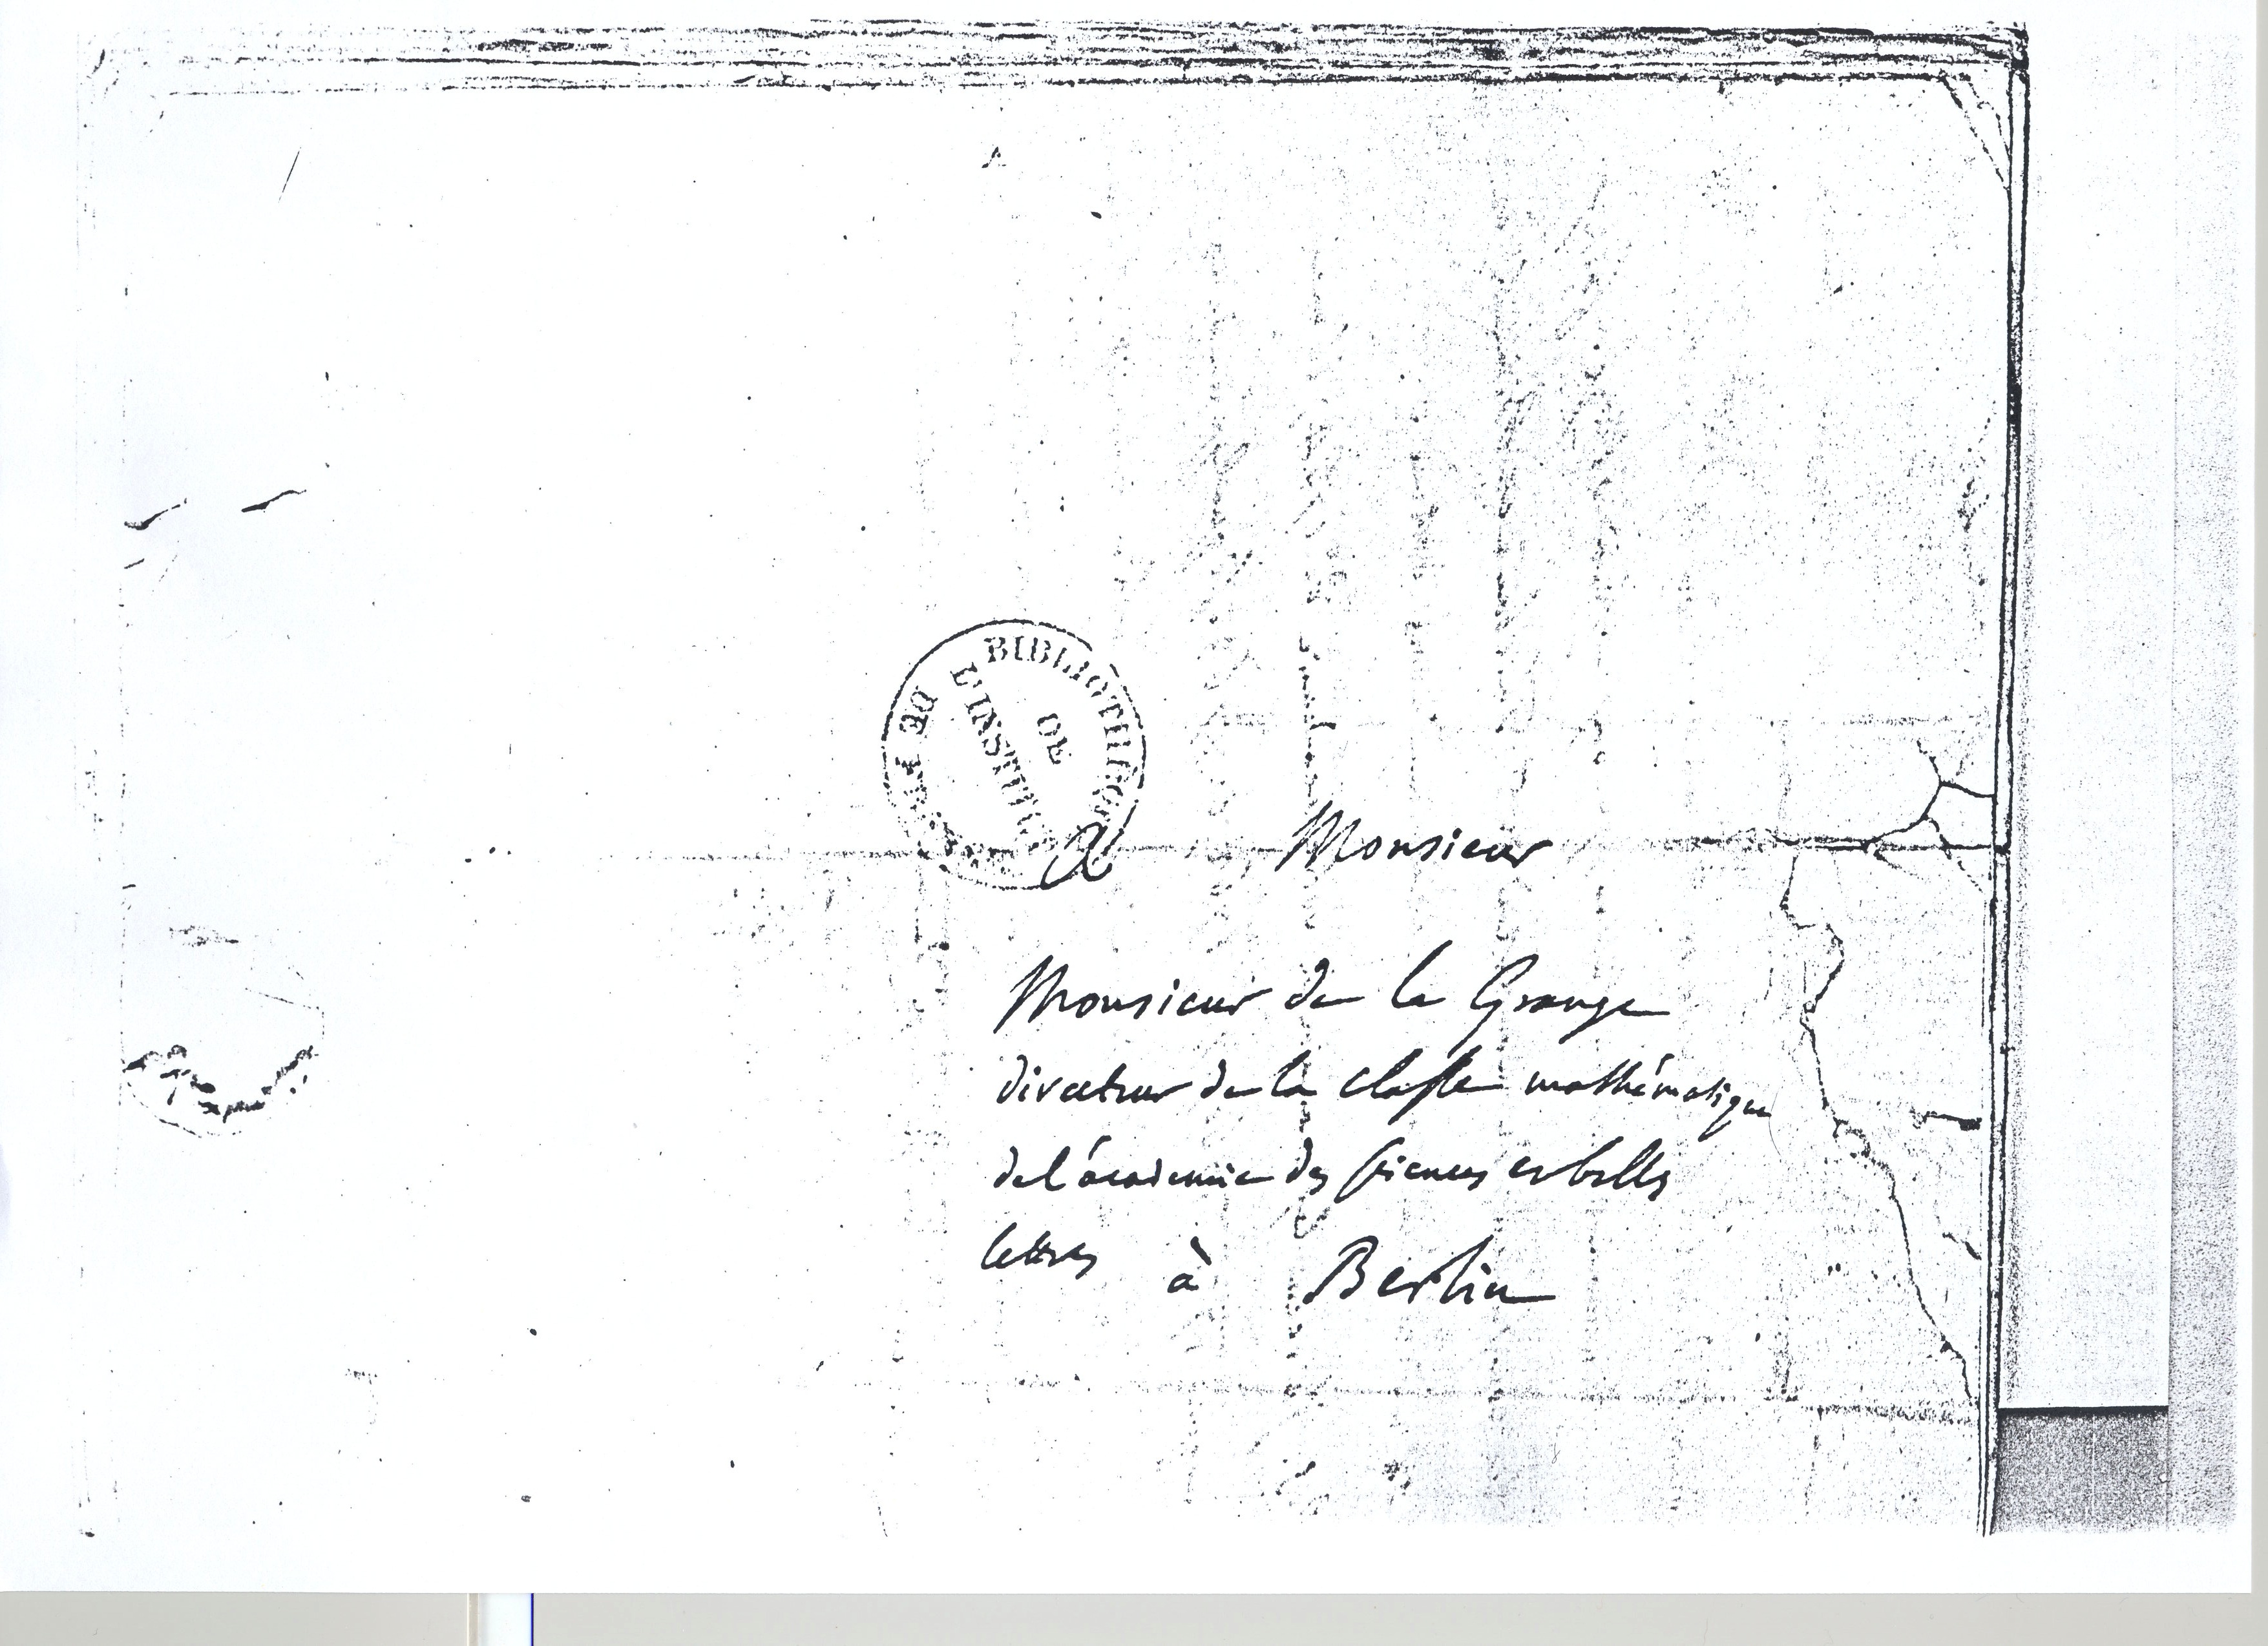 BIBLIOTHÈQUE
DE
L'INSTITUT
DE FRANCE
A Monsieur
Monsieur de la Grange
directeur de la classe mathématique
de l'académie des sciences et belles
lettres à Berlin